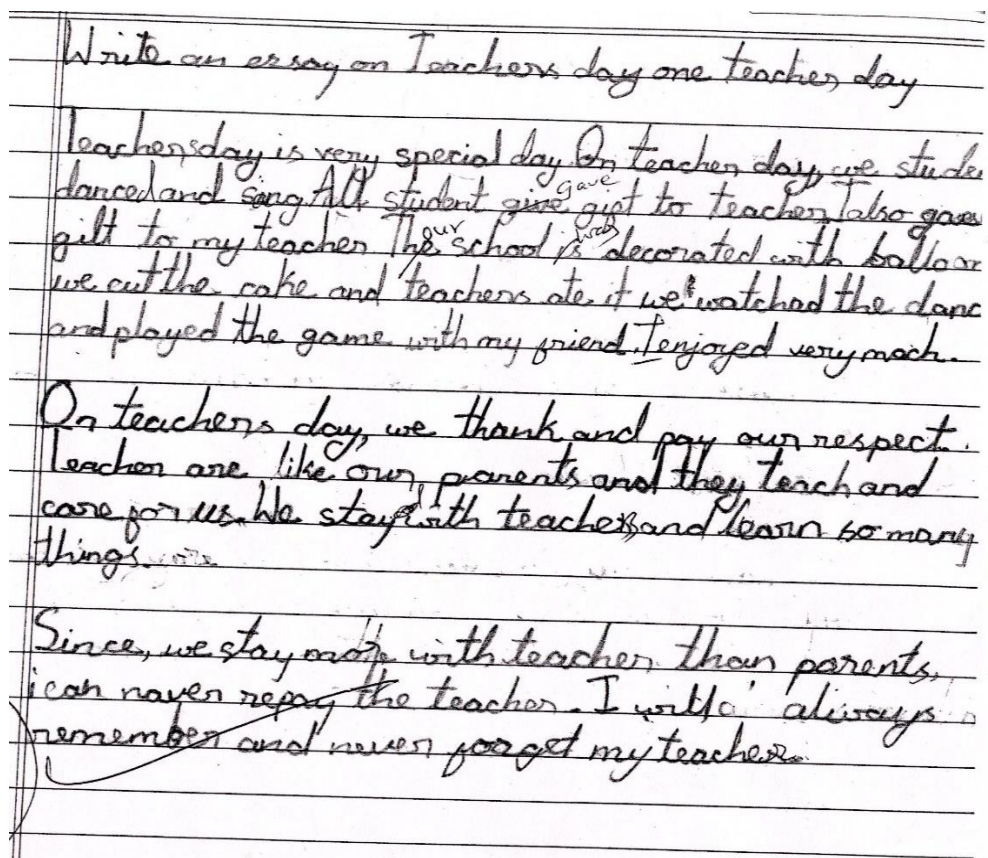 Write an essay on Teachers day one teacher day
Teachersday is very special day On teacher day, we stude
danced and sang All student gave gift to teacher I also gave
gilt to my teacher The our school is was decorated with balloor
we cut the cake and teachers ate it we watchad the danc
and played the game with my friend. I enjoyed very moch.
On teachers day, we thank and pay our respect.
Teacher are like our parents and they teach and
care for us. We stay with teachers and learn so many
things.
Since, we stay more with teacher than parents,
i can naver repay the teacher. I will always
remember and never forget my teacher.